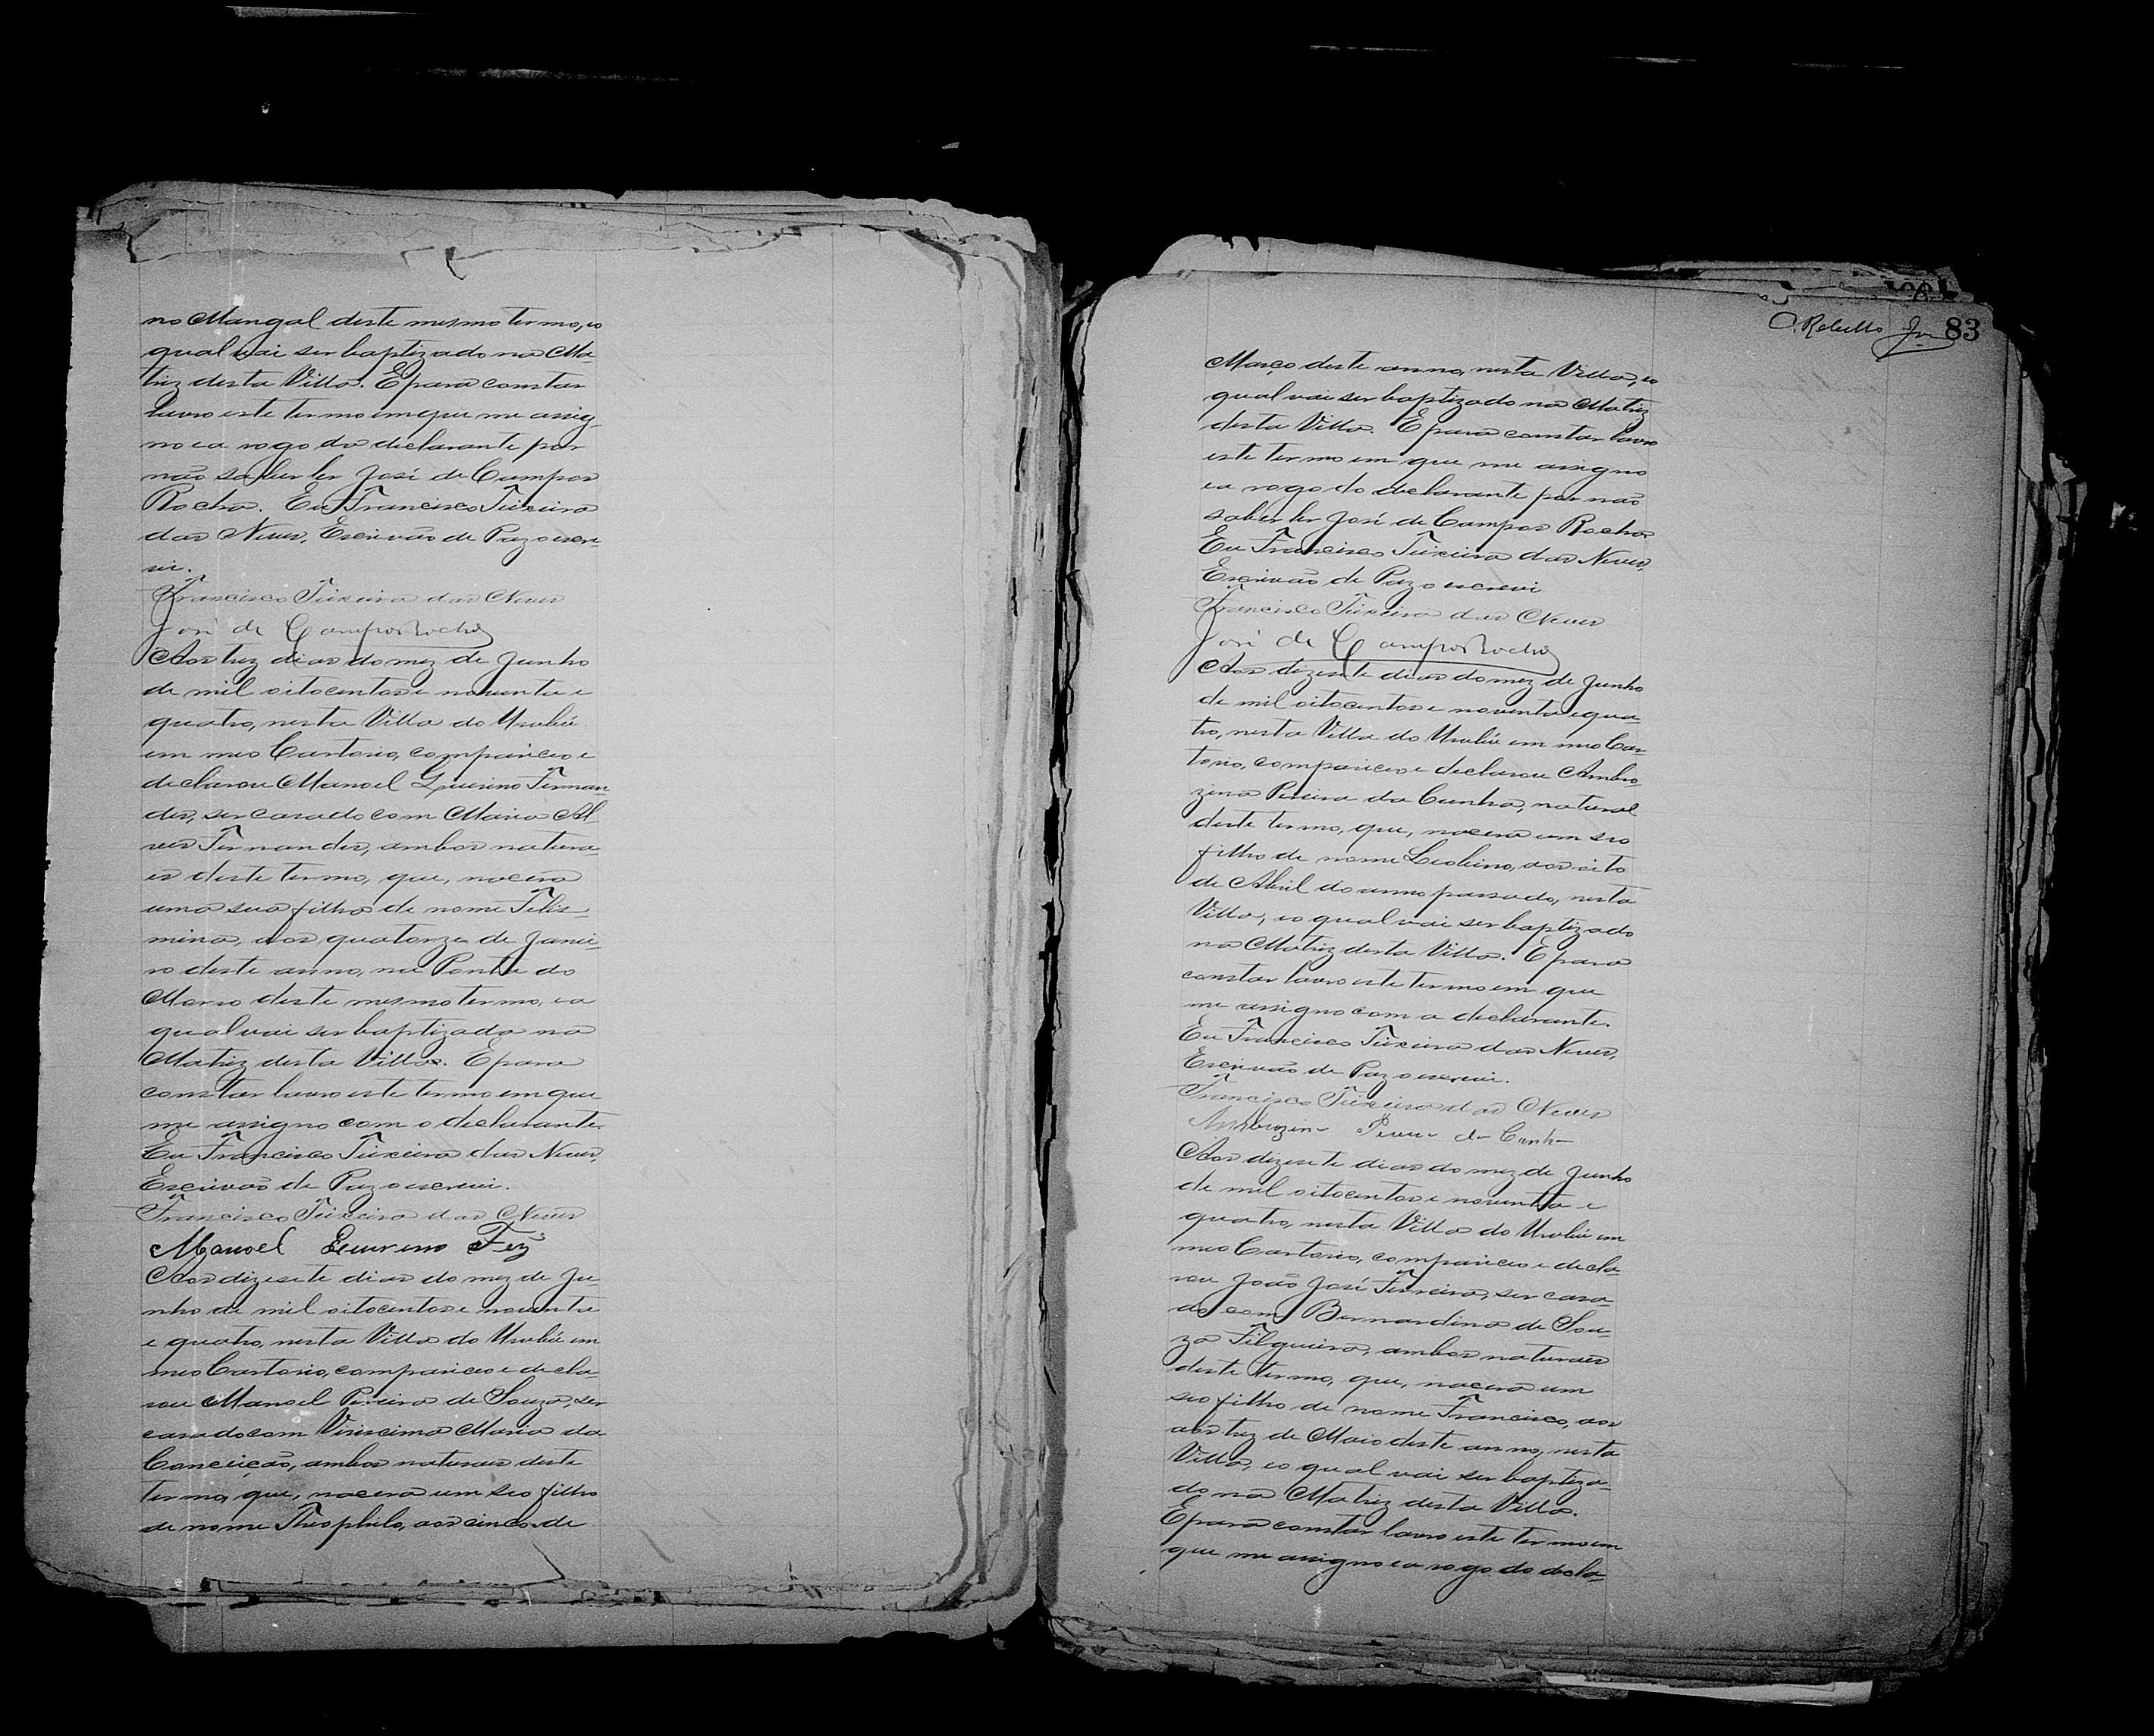 no Mangal deste mesmo termo, eo
qual vai ser baptizado na Ma-
triz desta Villa. E para constar
lavro este termo em que me assig-
no e a rogo do declarante por
não saber ler José de Campos
Rocha. Eu Francisco Teixeira
das Neves, Escrivão de Paz o escre-
vi.
Francisco Teixeira das Neves
José de Campos Rocha
Aos trez dias do mez de Junho
de mil oitocentos e noventa e
quatro, nesta Villa do Urubú
em meo Cartorio, compareceo e
declarou Manoel Quirino Fernan
des, ser casado com Maria Al
ves Fernandes, ambos natura-
es deste termo, que, nacera
uma sua filha de nome Felis-
mina, aos quatorze de Janei-
ro deste anno, na Ponta do
Morro deste mesmo termo, e a
qual vai ser baptizada na
Matriz desta Villa. E para
constar lavro este termo em que
me assigno com o declarante.
Eu Francisco Teixeira das Neves,
Escrivão de Paz o escrevi.
Francisco Teixeira das Neves
Manoel Fez
Aos dizesete dias do mez de Ju
nho de mil oitocentos e noventa
e quatro, nesta Villa do Urubú em
meo Cartorio, compareceo e decla-
rou Manoel Pereira de Souza, ser
casado com Virissima Maria da
Conceição, ambos naturaes deste
termo, que, nacera um seo filho
de nome Theophilo, aos cinco de
C. Rebello Jnr 83
Março deste anno, nesta Villa, eo
qual vai ser baptizado na Matriz
desta Villa. E para constar lavro
este termo em que me assigno
e a rogo do declarante por não
saber ler José de Campos Rocha
Eu Francisco Teixeira das Neves,
Escrivão de Paz o escrevi
Francisco Teixeira das Neves
José de Campos Rocha
Aos dizesete dias do mez de Junho
de mil oitocentos e noventa e qua-
tro, nesta Villa do Urubú em meo Car-
torio, compareceo e declarou Ambro
zina Pereira da Cunha, natural
deste termo, que, nacera um seo
filho de nome Leobino, aos oito
de Abril do anno passado, nesta
Villa, eo qual vai ser baptizado
na Matriz desta Villa. E para
constar lavro este termo em que
me assigno com a declarante.
Eu Francisco Teixeira das Neves,
Escrivão de Paz o escrevi.
Francisco Teixeira das Neves
Ambrozina Pereira da Cunha
Aos dizesete dias do mez de Junho
de mil oitocentos e noventa e
quatro, nesta Villa do Urubú em
meo Cartorio, compareceo e decla-
rou João José Ferreira, ser casa-
do com Bernardina de Sou-
za Filgueira, ambos naturaes
deste termo, que, nacera um
seo filho de nome Francisco, aos
aos trez de Maio deste anno, nesta
Villa, eo qual vai ser baptiza-
do na Matriz desta Villa.
E para constar lavro este termo em
que me assigno e a rogo do decla-